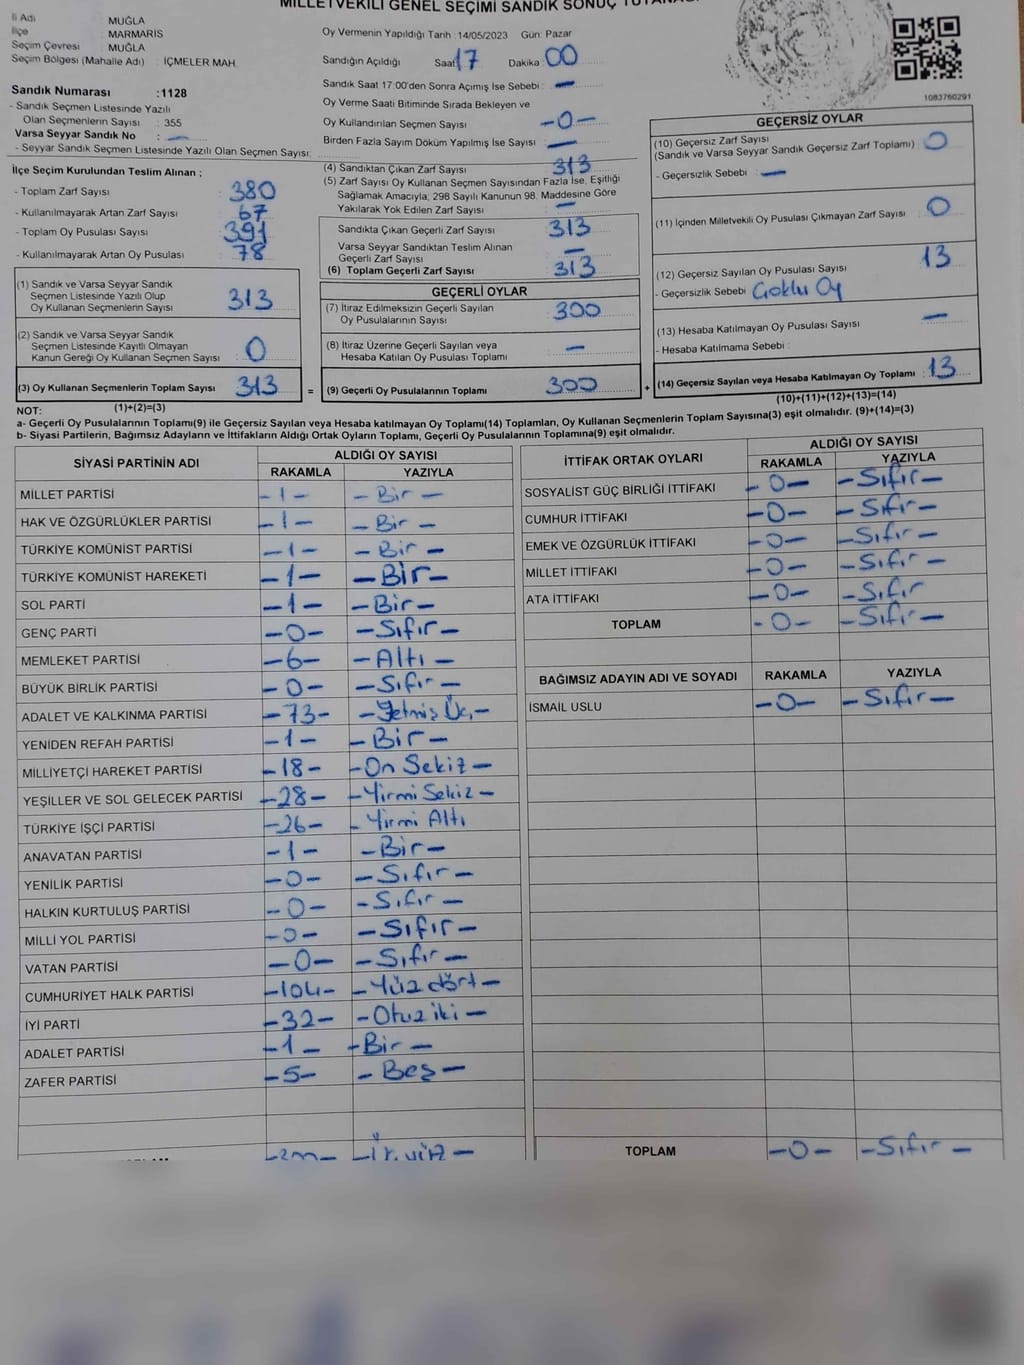 MİLLETVEKİLİ GENEL SEÇİMİ SANDIK SONUÇ
İl Adı MUĞLA
İlçe MARMARİS
Seçim Çevresi MUĞLA
Seçim Bölgesi (Mahalle Adı) : İÇMELER MAH.
Sandık Numarası :1128
- Sandık Seçmen Listesinde Yazılı
Olan Seçmenlerin Sayısı : 355
Varsa Seyyar Sandık No : —
- Seyyar Sandık Seçmen Listesinde Yazılı Olan Seçmen Sayısı:
İlçe Seçim Kurulundan Teslim Alınan ;
- Toplam Zarf Sayısı 380
- Kullanılmayarak Artan Zarf Sayısı 67
- Toplam Oy Pusulası Sayısı 391
- Kullanılmayarak Artan Oy Pusulası 78
(1) Sandık ve Varsa Seyyar Sandık
Seçmen Listesinde Yazılı Olup
Oy Kullanan Seçmenlerin Sayısı 313
(2) Sandık ve Varsa Seyyar Sandık
Seçmen Listesinde Kayıtlı Olmayan
Kanun Gereği Oy Kullanan Seçmen Sayısı 0
(3) Oy Kullanan Seçmenlerin Toplam Sayısı 313 =
Oy Vermenin Yapıldığı Tarih : 14/05/2023 Gün: Pazar
Sandığın Açıldığı Saat 17 Dakika 00
Sandık Saat 17:00'den Sonra Açımış İse Sebebi : —
Oy Verme Saati Bitiminde Sırada Bekleyen ve
Oy Kullandırılan Seçmen Sayısı —0—
Birden Fazla Sayım Döküm Yapılmış İse Sayısı —
(4) Sandıktan Çıkan Zarf Sayısı 313
(5) Zarf Sayısı Oy Kullanan Seçmen Sayısından Fazla İse, Eşitliği
Sağlamak Amacıyla, 298 Sayılı Kanunun 98. Maddesine Göre
Yakılarak Yok Edilen Zarf Sayısı —
Sandıkta Çıkan Geçerli Zarf Sayısı 313
Varsa Seyyar Sandıktan Teslim Alınan
Geçerli Zarf Sayısı —
(6) Toplam Geçerli Zarf Sayısı 313
GEÇERLİ OYLAR
(7) İtiraz Edilmeksizin Geçerli Sayılan
Oy Pusulalarının Sayısı 300
(8) İtiraz Üzerine Geçerli Sayılan veya
Hesaba Katılan Oy Pusulası Toplamı —
(9) Geçerli Oy Pusulalarının Toplamı 300 +
1083760291
GEÇERSİZ OYLAR
(10) Geçersiz Zarf Sayısı
(Sandık ve Varsa Seyyar Sandık Geçersiz Zarf Toplamı) : 0
- Geçersizlik Sebebi : —
(11) İçinden Milletvekili Oy Pusulası Çıkmayan Zarf Sayısı 0
(12) Geçersiz Sayılan Oy Pusulası Sayısı 13
- Geçersizlik Sebebi Çoklu Oy
(13) Hesaba Katılmayan Oy Pusulası Sayısı —
- Hesaba Katılmama Sebebi :
(14) Geçersiz Sayılan veya Hesaba Katılmayan Oy Toplamı : 13
(10)+(11)+(12)+(13)=(14)
NOT: (1)+(2)=(3)
a- Geçerli Oy Pusulaları Toplamı(9) ile Geçersiz Sayılan veya Hesaba katılmayan Oy Toplamı(14) Toplamları, Oy Kullanan Seçmenlerin Toplam Sayısına(3) eşit olmalıdır. (9)+(14)=(3)
b- Siyasi Partilerin, Bağımsız Adayların ve İttifakların Aldığı Ortak Oyların Toplamı, Geçerli Oy Pusulalarının Toplamına(9) eşit olmalıdır.
SİYASİ PARTİNİN ADI ALDIĞI OY SAYISI
RAKAMLA YAZIYLA
MİLLET PARTİSİ -1- -Bir-
HAK VE ÖZGÜRLÜKLER PARTİSİ -1- -Bir-
TÜRKİYE KOMÜNİST PARTİSİ -1- -Bir-
TÜRKİYE KOMÜNİST HAREKETİ -1- -Bir-
SOL PARTİ -1- -Bir-
GENÇ PARTİ -0- -Sıfır-
MEMLEKET PARTİSİ -6- -Altı-
BÜYÜK BİRLİK PARTİSİ -0- -Sıfır-
ADALET VE KALKINMA PARTİSİ -73- -Yetmiş Üç-
YENİDEN REFAH PARTİSİ -1- -Bir-
MİLLİYETÇİ HAREKET PARTİSİ -18- -On Sekiz-
YEŞİLLER VE SOL GELECEK PARTİSİ -28- -Yirmi Sekiz-
TÜRKİYE İŞÇİ PARTİSİ -26- -Yirmi Altı
ANAVATAN PARTİSİ -1- -Bir-
YENİLİK PARTİSİ -0- -Sıfır-
HALKIN KURTULUŞ PARTİSİ -0- -Sıfır-
MİLLİ YOL PARTİSİ -0- -Sıfır-
VATAN PARTİSİ -0- -Sıfır-
CUMHURİYET HALK PARTİSİ -104- -Yüz dört-
İYİ PARTİ -32- -Otuz iki-
ADALET PARTİSİ -1- -Bir-
ZAFER PARTİSİ -5- -Beş-
İTTİFAK ORTAK OYLARI ALDIĞI OY SAYISI
RAKAMLA YAZIYLA
SOSYALİST GÜÇ BİRLİĞİ İTTİFAKI -0- -Sıfır-
CUMHUR İTTİFAKI -0- -Sıfır-
EMEK VE ÖZGÜRLÜK İTTİFAKI -0- -Sıfır-
MİLLET İTTİFAKI -0- -Sıfır-
ATA İTTİFAKI -0- -Sıfır
TOPLAM -0- -Sıfır-
BAĞIMSIZ ADAYIN ADI VE SOYADI RAKAMLA YAZIYLA
İSMAİL USLU -0- -Sıfır-
TOPLAM -0- -Sıfır-